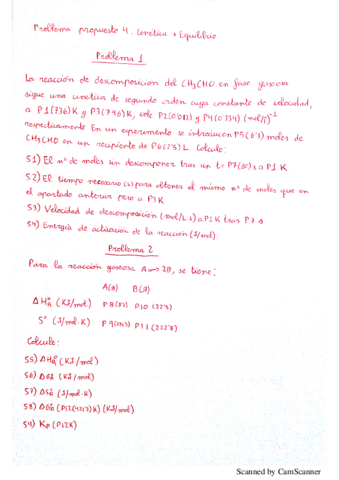 Problema propuesto 4. Cinética + Equilibrio
Problema 1
La reacción de descomposición del CH3CHO en fase gaseosa
sigue una cinética de segundo orden cuya constante de velocidad,
a P1(736)K y P3(796)K, vale P2(0'012) y P4(0'734) (mol/L)-1
respectivamente En un experimento se introducen P5(6'7) moles de
CH3CHO en un recipiente de P6(2'5) L Calcule:
51) El nº de moles sin descomponer tras un t= P7(60)s a P1 K
52) El tiempo necesario (s) para obtener el mismo nº de moles que en
el apartado anterior pero a P3K
53) Velocidad de descomposición (mol/L s) a P1K tras P7 s
54) Energía de activación de la reacción (J/mol).
Problema 2
Para la reacción gaseosa A⇔2B, se tiene:
A(g) B(g)
ΔHºR (KJ/mol) P8(82) P10 (32'5)
Sº (J/mol·K) P11 (222'8)
Calcule:
55) ΔHºR (KJ/mol)
56) (KJ/mol)
57) (J/mol·K)
58) (KJ/mol)
59) Kp (P12K)
Scanned by CamScanner